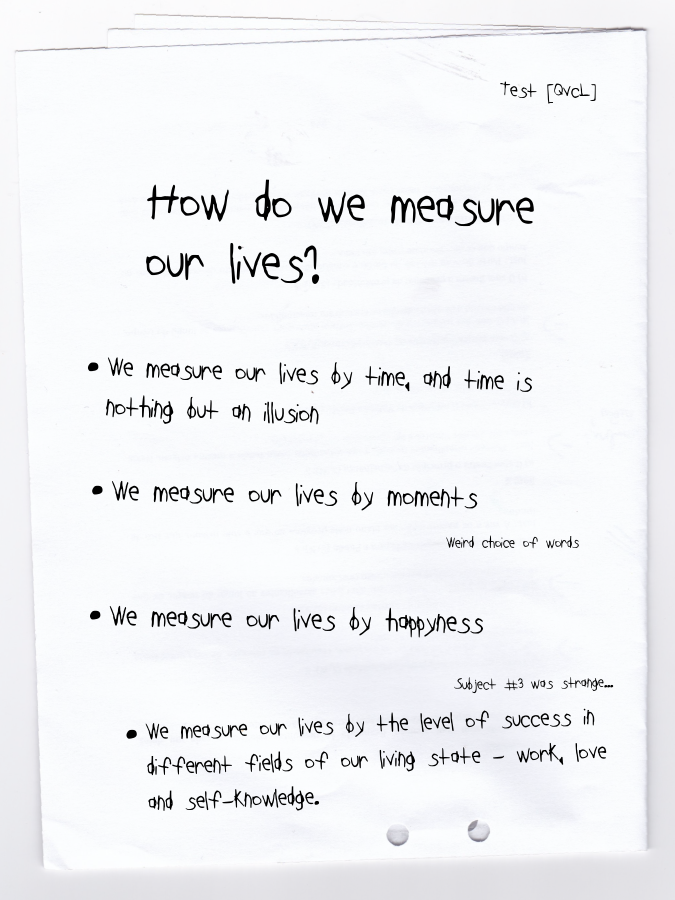 Test [QvcL]
How do we measure
our lives?
• We measure our lives by time, and time is
nothing but an illusion
• We measure our lives by moments
Weird choice of words
• We measure our lives by happyness
Subject #3 was strange...
• We measure our lives by the level of success in
different fields of our living state – work, love
and self-knowledge.